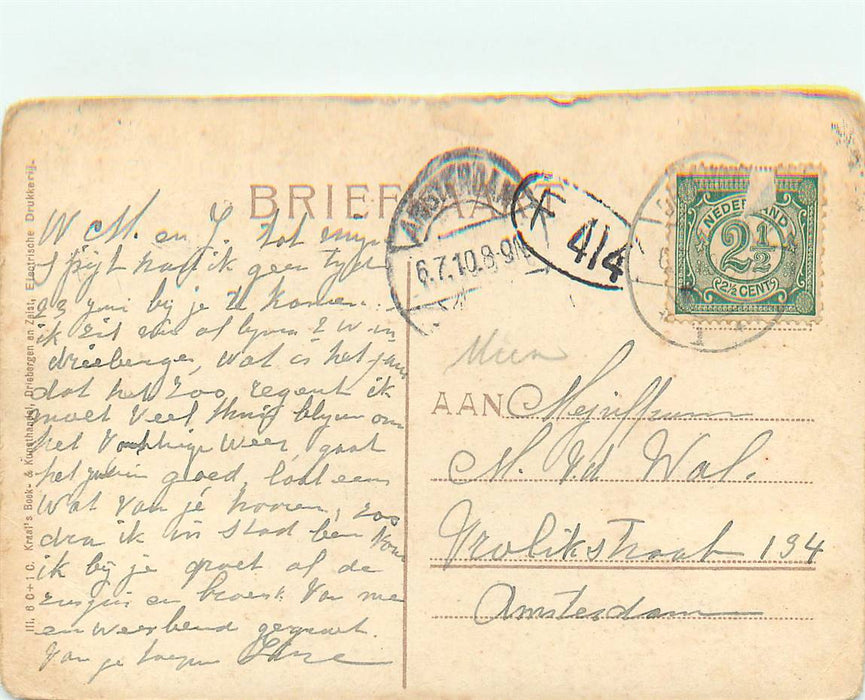 BRIEFKAART
AMSTERDAM
6.7.10.8-9N
F 414
NEDERLAND
2½
(2½ CENT)
Ill. 6 C + 1 C. Kraal's Boek- & Kunsthandel, Driebergen en Zeist, Electrische Drukkerij.
W M. en J. tot mijn
spijt had ik geen tyd
bij je te komen.
ik zit al 2 W in
driebergen, wat is het
dat het zoo regent ik
moet veel thuis blyven om
het weer, gaat
het goed, laat eens
wat van je hooren, zoo
dra ik in stad ben kom
ik bij je groet al de
zusjes en broers. Van me
en weerbeind gegroet.
Van je
AAN Mejuffrouw
M. vd Wal.
Vrolikstraat 134
Amsterdam